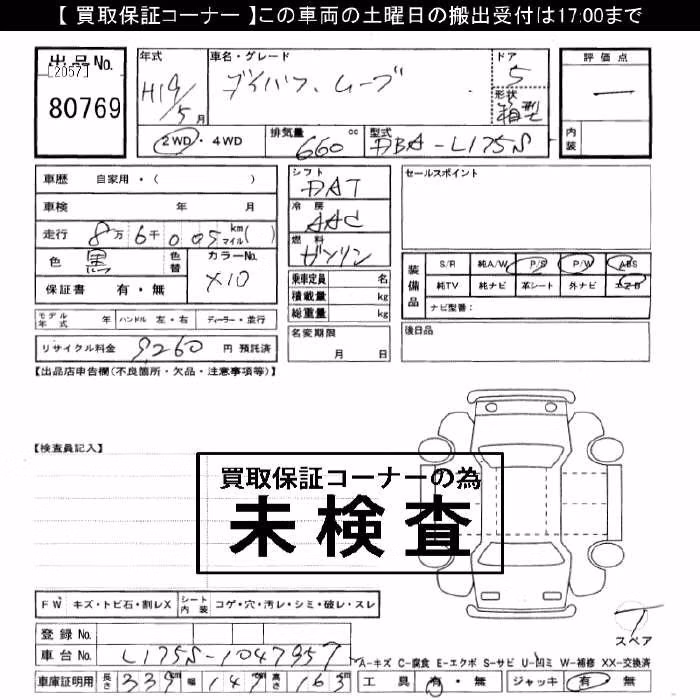 【 買取保証コーナー 】この車両の土曜日の搬出受付は17:00まで
出品No.
[2057]
80769
年式 H19/5月
車名・グレード
ダイハツ ムーブ
ドア 5
形状 箱型
評価点
一
内装
2WD・4WD
排気量 660 cc
型式 DBA-L175S
車歴 自家用・( )
車検 年 月
走行 8万6千005 km マイル( )
色 黒 色替
カラーNo. X10
保証書 有・無
シフト DAT
冷房 AAC
燃料 ガソリン
乗車定員 名
積載量 kg
総重量 kg
セールスポイント
装備品
S/R 純A/W P/S P/W ABS
純TV 純ナビ 革シート 外ナビ エアB
ナビ型番:
モデル年式 年 ハンドル 左・右 ディーラー・並行
名変期限 月 日
後日品
リサイクル料金 9,260 円 預託済
【出品店申告欄(不良箇所・欠品・注意事項等)】
【検査員記入】
買取保証コーナーの為
未検査
FW キズ・トビ石・割レX シート内装 コゲ・穴・汚レ・シミ・破レ・スレ
スペア
登録No.
車台No. L175S-1047957
A-キズ C-腐食 E-エクボ S-サビ U-凹ミ W-補修 XX-交換済
車庫証明用 長さ 339 cm 幅 147 cm 高さ 163 cm 工具 有・無 ジャッキ 有・無